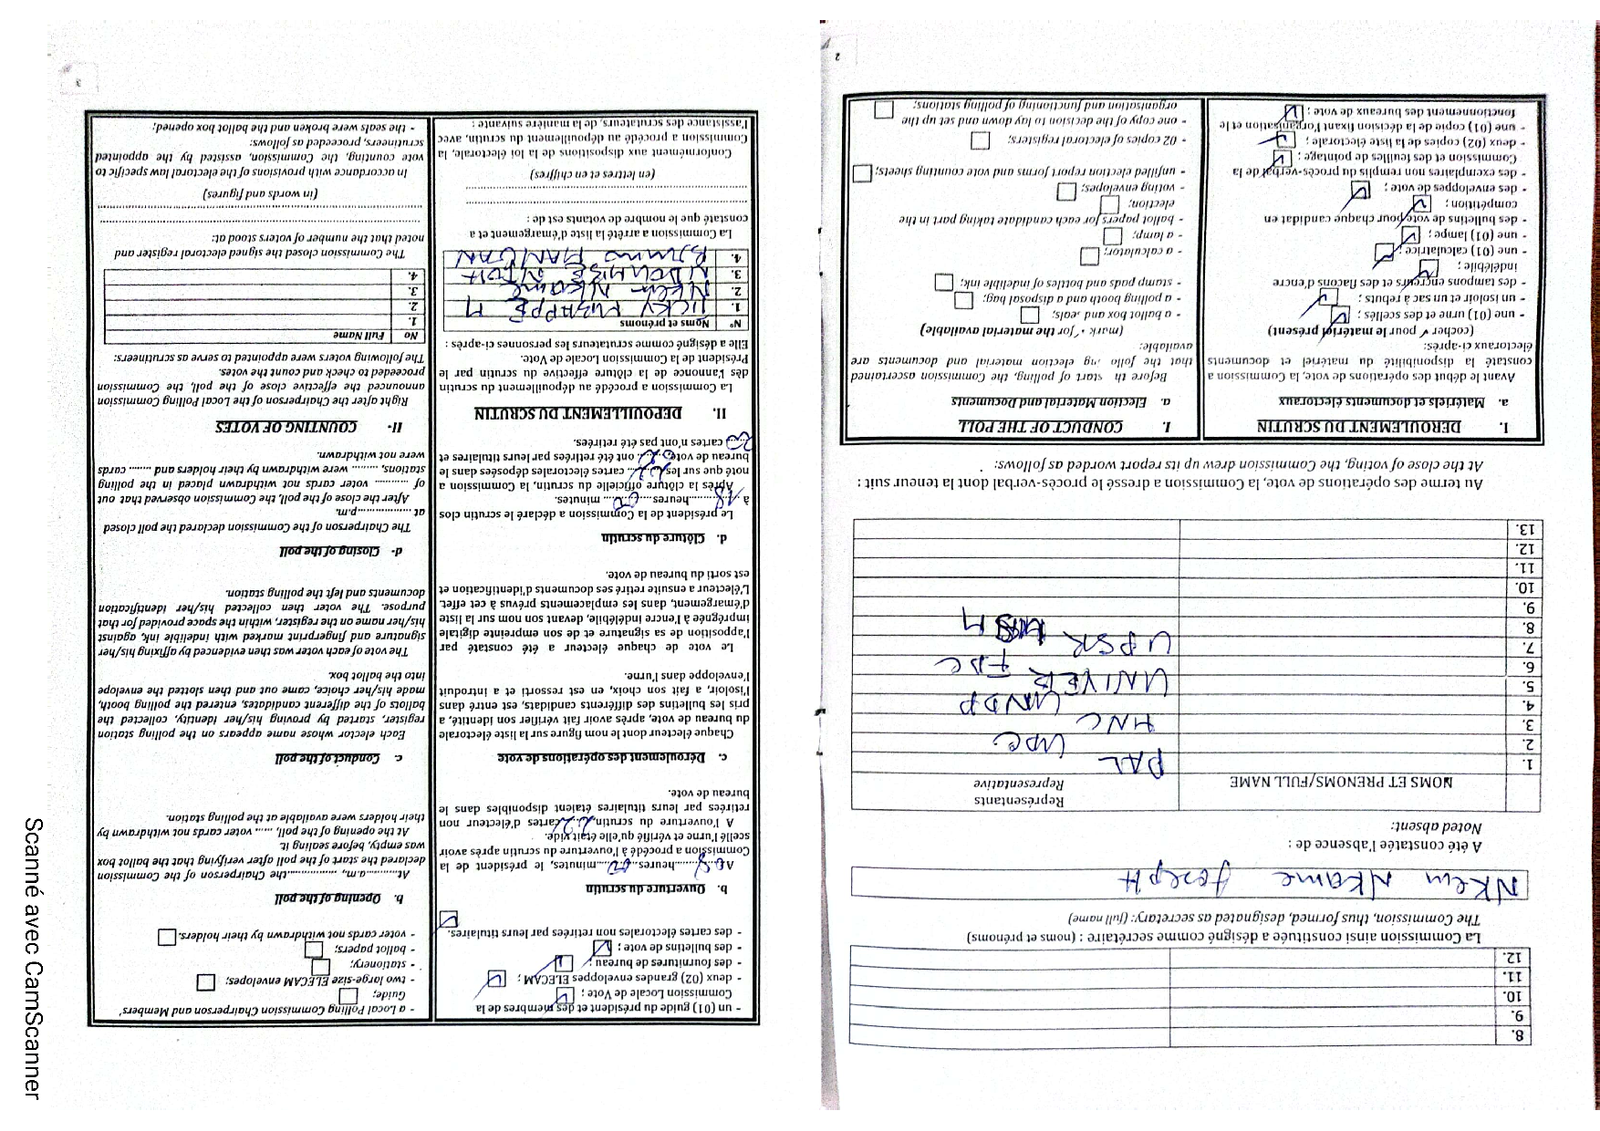 8.
9.
10.
11.
12.
La Commission ainsi constituée a désigné comme secrétaire : (noms et prénoms)
The Commission, thus formed, designated as secretary: (full name)
NKem NKame Joseph
A été constatée l'absence de :
Noted absent:
NOMS ET PRENOMS/FULL NAME
Représentants
Representative
1. PAL
2. UPC
3. MNC
4. UNDP
5. UNIVER
6. FDC
7. UPSR
8.
9.
10.
11.
12.
13.
Au terme des opérations de vote, la Commission a dressé le procès-verbal dont la teneur suit :
At the close of voting, the Commission drew up its report worded as follows:
I. DEROULEMENT DU SCRUTIN
a. Matériels et documents électoraux
Avant le début des opérations de vote, la Commission a
constaté la disponibilité du matériel et documents
électoraux ci-après:
(cocher ✓ pour le matériel présent)
- une (01) urne et des scellés ;
- un isoloir et un sac à rebuts ;
- des tampons encreurs et des flacons d'encre
indélébile ;
- une (01) calculatrice ;
- une (01) lampe ;
- des bulletins de vote pour chaque candidat en
compétition ;
- des enveloppes de vote ;
- des exemplaires non remplis du procès-verbal de la
Commission et des feuilles de pointage ;
- deux (02) copies de la liste électorale ;
- une (01) copie de la décision fixant l'organisation et le
fonctionnement des bureaux de vote ;
I. CONDUCT OF THE POLL
a. Election Material and Documents
Before th start of polling, the Commission ascertained
that the follo ng election material and documents are
available:
(mark ✓ for the material available)
- a ballot box and seals;
- a polling booth and a disposal bag;
- stamp pads and bottles of indelible ink;
- a calculator;
- a lamp;
- ballot papers for each candidate taking part in the
election;
- voting envelopes;
- unfilled election report forms and vote counting sheets;
- 02 copies of electoral registers;
- one copy of the decision to lay down and set up the
organisation and functioning of polling stations;
2
- un (01) guide du président et des membres de la
Commission Locale de Vote ;
- deux (02) grandes enveloppes ELECAM ;
- des fournitures de bureau ;
- des bulletins de vote ;
- des cartes électorales non retirées par leurs titulaires.
b. Ouverture du scrutin
A 08 heures 00 minutes, le président de la
Commission a procédé à l'ouverture du scrutin après avoir
scellé l'urne et vérifié qu'elle était vide.
A l'ouverture du scrutin, 22 cartes d'électeur non
retirées par leurs titulaires étaient disponibles dans le
bureau de vote.
c. Déroulement des opérations de vote
Chaque électeur dont le nom figure sur la liste électorale
du bureau de vote, après avoir fait vérifier son identité, a
pris les bulletins des différents candidats, est entré dans
l'isoloir, a fait son choix, en est ressorti et a introduit
l'enveloppe dans l'urne.
Le vote de chaque électeur a été constaté par
l'apposition de sa signature et de son empreinte digitale
imprégnée à l'encre indélébile, devant son nom sur la liste
d'émargement, dans les emplacements prévus à cet effet.
L'électeur a ensuite retiré ses documents d'identification et
est sorti du bureau de vote.
d. Clôture du scrutin
Le président de la Commission a déclaré le scrutin clos
à 18 heures 00 minutes.
Après la clôture officielle du scrutin, la Commission a
noté que sur les 22 cartes électorales déposées dans le
bureau de vote, ont été retirées par leurs titulaires et
cartes n'ont pas été retirées.
II. DEPOUILLEMENT DU SCRUTIN
La Commission a procédé au dépouillement du scrutin
dès l'annonce de la clôture effective du scrutin par le
Président de la Commission Locale de Vote.
Elle a désigné comme scrutateurs les personnes ci-après :
N° Noms et prénoms
1. UCKY MBAPPE M
2. NKem NKame
3. NDOUMBE NTOH
4.
La Commission a arrêté la liste d'émargement et a
constaté que le nombre de votants est de :
(en lettres et en chiffres)
Conformément aux dispositions de la loi électorale, la
Commission a procédé au dépouillement du scrutin, avec
l'assistance des scrutateurs, de la manière suivante :
- a Local Polling Commission Chairperson and Members'
Guide;
- two large-size ELECAM envelopes;
- stationery;
- ballot papers;
- voter cards not withdrawn by their holders.
b. Opening of the poll
At..........a.m, ..............the Chairperson of the Commission
declared the start of the poll after verifying that the ballot box
was empty, before sealing it.
At the opening of the poll, ...... voter cards not withdrawn by
their holders were available at the polling station.
c. Conduct of the poll
Each elector whose name appears on the polling station
register, started by proving his/her identity, collected the
ballots of the different candidates, entered the polling booth,
made his/her choice, came out and then slotted the envelope
into the ballot box.
The vote of each voter was then evidenced by affixing his/her
signature and fingerprint marked with indelible ink, against
his/her name on the register, within the space provided for that
purpose. The voter then collected his/her identification
documents and left the polling station.
d- Closing of the poll
The Chairperson of the Commission declared the poll closed
at ..................p.m.
After the close of the poll, the Commission observed that out
of ......... voter cards not withdrawn placed in the polling
stations, ......... were withdrawn by their holders and ....... cards
were not withdrawn.
II- COUNTING OF VOTES
Right after the Chairperson of the Local Polling Commission
announced the effective close of the poll, the Commission
proceeded to check and count the votes.
The following voters were appointed to serve as scrutineers:
No Full Name
1.
2.
3.
4.
The Commission closed the signed electoral register and
noted that the number of voters stood at:
(in words and figures)
In accordance with provisions of the electoral law specific to
vote counting, the Commission, assisted by the appointed
scrutineers, proceeded as follows:
- the seals were broken and the ballot box opened;
3
Scanné avec CamScanner